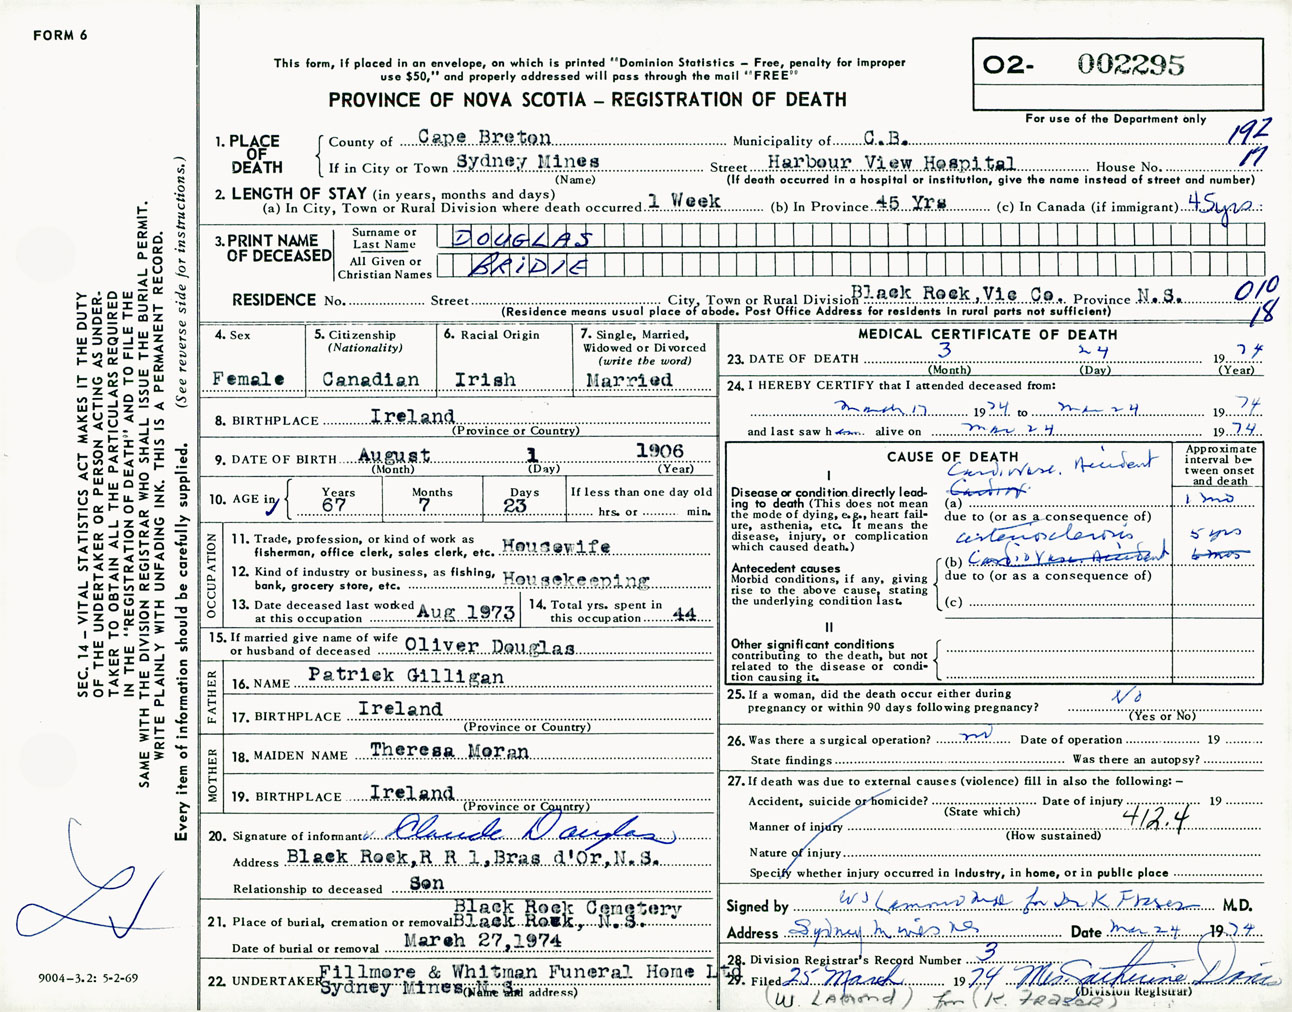 FORM 6
This form, if placed in an envelope, on which is printed "Dominion Statistics – Free, penalty for improper
use $50," and properly addressed will pass through the mail "FREE"
PROVINCE OF NOVA SCOTIA – REGISTRATION OF DEATH
O2- 002295
For use of the Department only
192
17
SEC. 14 – VITAL STATISTICS ACT MAKES IT THE DUTY
OF THE UNDERTAKER OR PERSON ACTING AS UNDER-
TAKER TO OBTAIN ALL THE PARTICULARS REQUIRED
IN THE "REGISTRATION OF DEATH" AND TO FILE THE
SAME WITH THE DIVISION REGISTRAR WHO SHALL ISSUE THE BURIAL PERMIT.
WRITE PLAINLY WITH UNFADING INK. THIS IS A PERMANENT RECORD.
Every item of information should be carefully supplied. (See reverse side for instructions.)
1. PLACE OF DEATH
County of Cape Breton Municipality of C.B.
If in City or Town Sydney Mines Street Harbour View Hospital House No.
(Name) (If death occurred in a hospital or institution, give the name instead of street and number)
2. LENGTH OF STAY (in years, months and days)
(a) In City, Town or Rural Division where death occurred 1 Week (b) In Province 45 Yrs (c) In Canada (if immigrant) 45yrs.
3. PRINT NAME OF DECEASED
Surname or Last Name DOUGLAS
All Given or Christian Names BRIDIE
RESIDENCE No. Street City, Town or Rural Division Black Rock, Vic Co. Province N.S.
010
18
(Residence means usual place of abode. Post Office Address for residents in rural parts not sufficient)
4. Sex
Female
5. Citizenship
(Nationality)
Canadian
6. Racial Origin
Irish
7. Single, Married,
Widowed or Divorced
(write the word)
Married
8. BIRTHPLACE Ireland
(Province or Country)
9. DATE OF BIRTH August 1 1906
(Month) (Day) (Year)
10. AGE in
Years Months Days If less than one day old
67 7 23 hrs. or min.
OCCUPATION
11. Trade, profession, or kind of work as
fisherman, office clerk, sales clerk, etc. Housewife
12. Kind of industry or business, as fishing,
bank, grocery store, etc. Housekeeping
13. Date deceased last worked
at this occupation Aug 1973
14. Total yrs. spent in
this occupation 44
15. If married give name of wife
or husband of deceased Oliver Douglas
FATHER
16. NAME Patrick Gilligan
17. BIRTHPLACE Ireland
(Province or Country)
MOTHER
18. MAIDEN NAME Theresa Moran
19. BIRTHPLACE Ireland
(Province or Country)
20. Signature of informant Claude Douglas
Address Black Rock, R R 1, Bras d'Or, N.S.
Relationship to deceased Son
Black Rock Cemetery
21. Place of burial, cremation or removal Black Rock, N.S.
Date of burial or removal March 27, 1974
22. UNDERTAKER Fillmore & Whitman Funeral Home Ltd
Sydney Mines, N.S.
(Name and address)
9004–3.2: 5-2-69
MEDICAL CERTIFICATE OF DEATH
23. DATE OF DEATH 3 24 1974
(Month) (Day) (Year)
24. I HEREBY CERTIFY that I attended deceased from:
March 17 1974 to Mar 24 1974
and last saw h alive on Mar 24 1974
CAUSE OF DEATH
Approximate
interval be-
tween onset
and death
I
Disease or condition directly lead-
ing to death (This does not mean
the mode of dying, e.g., heart fail-
ure, asthenia, etc. It means the
disease, injury, or complication
which caused death.)
Cardiovasc. Accident
(a) 1 mo
due to (or as a consequence of)
arteriosclerosis 5 yrs
(b) CardioVasc Accident 6 mos
Antecedent causes
Morbid conditions, if any, giving
rise to the above cause, stating
the underlying condition last.
due to (or as a consequence of)
(c)
II
Other significant conditions
contributing to the death, but not
related to the disease or condi-
tion causing it.
25. If a woman, did the death occur either during
pregnancy or within 90 days following pregnancy? No
(Yes or No)
26. Was there a surgical operation? no Date of operation 19
State findings Was there an autopsy?
27. If death was due to external causes (violence) fill in also the following: –
Accident, suicide or homicide? Date of injury 19
(State which)
412.4
Manner of injury
(How sustained)
Nature of injury
Specify whether injury occurred in industry, in home, or in public place
Signed by W J Lamond MD for Dr K Fraser M.D.
Address Sydney Mines NS Date Mar 24 1974
28. Division Registrar's Record Number 3
29. Filed 25 March 1974 Mrs. Catherine Davis
(Division Registrar)
(W. LAMOND) for (K. FRASER)